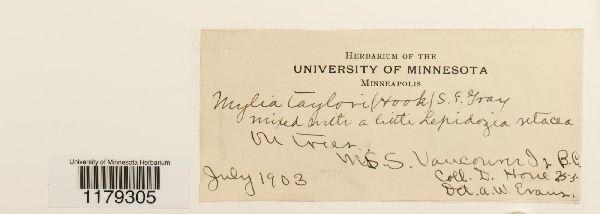 HERBARIUM OF THE
UNIVERSITY OF MINNESOTA
MINNEAPOLIS
Mylia taylori (Hook) S. F. Gray
mixed with a little Lepidozia setacea
On trees.
M.S.S. Vancouver Is B.C.
July 1903
Coll. D. Hone
Det. A. W. Evans.
University of Minnesota Herbarium
1179305